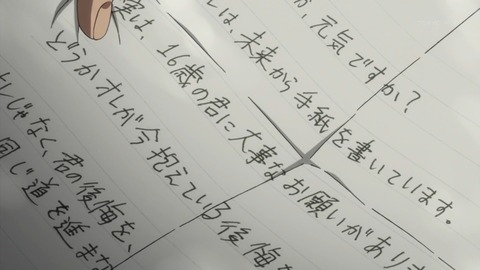 か、元気ですか?
レは、未来から手紙を書いています。
実は、16歳の君に大事なお願いがありま
どうかオレが今抱えている後悔
じゃなく、君の後悔を、
同じ道を進まな